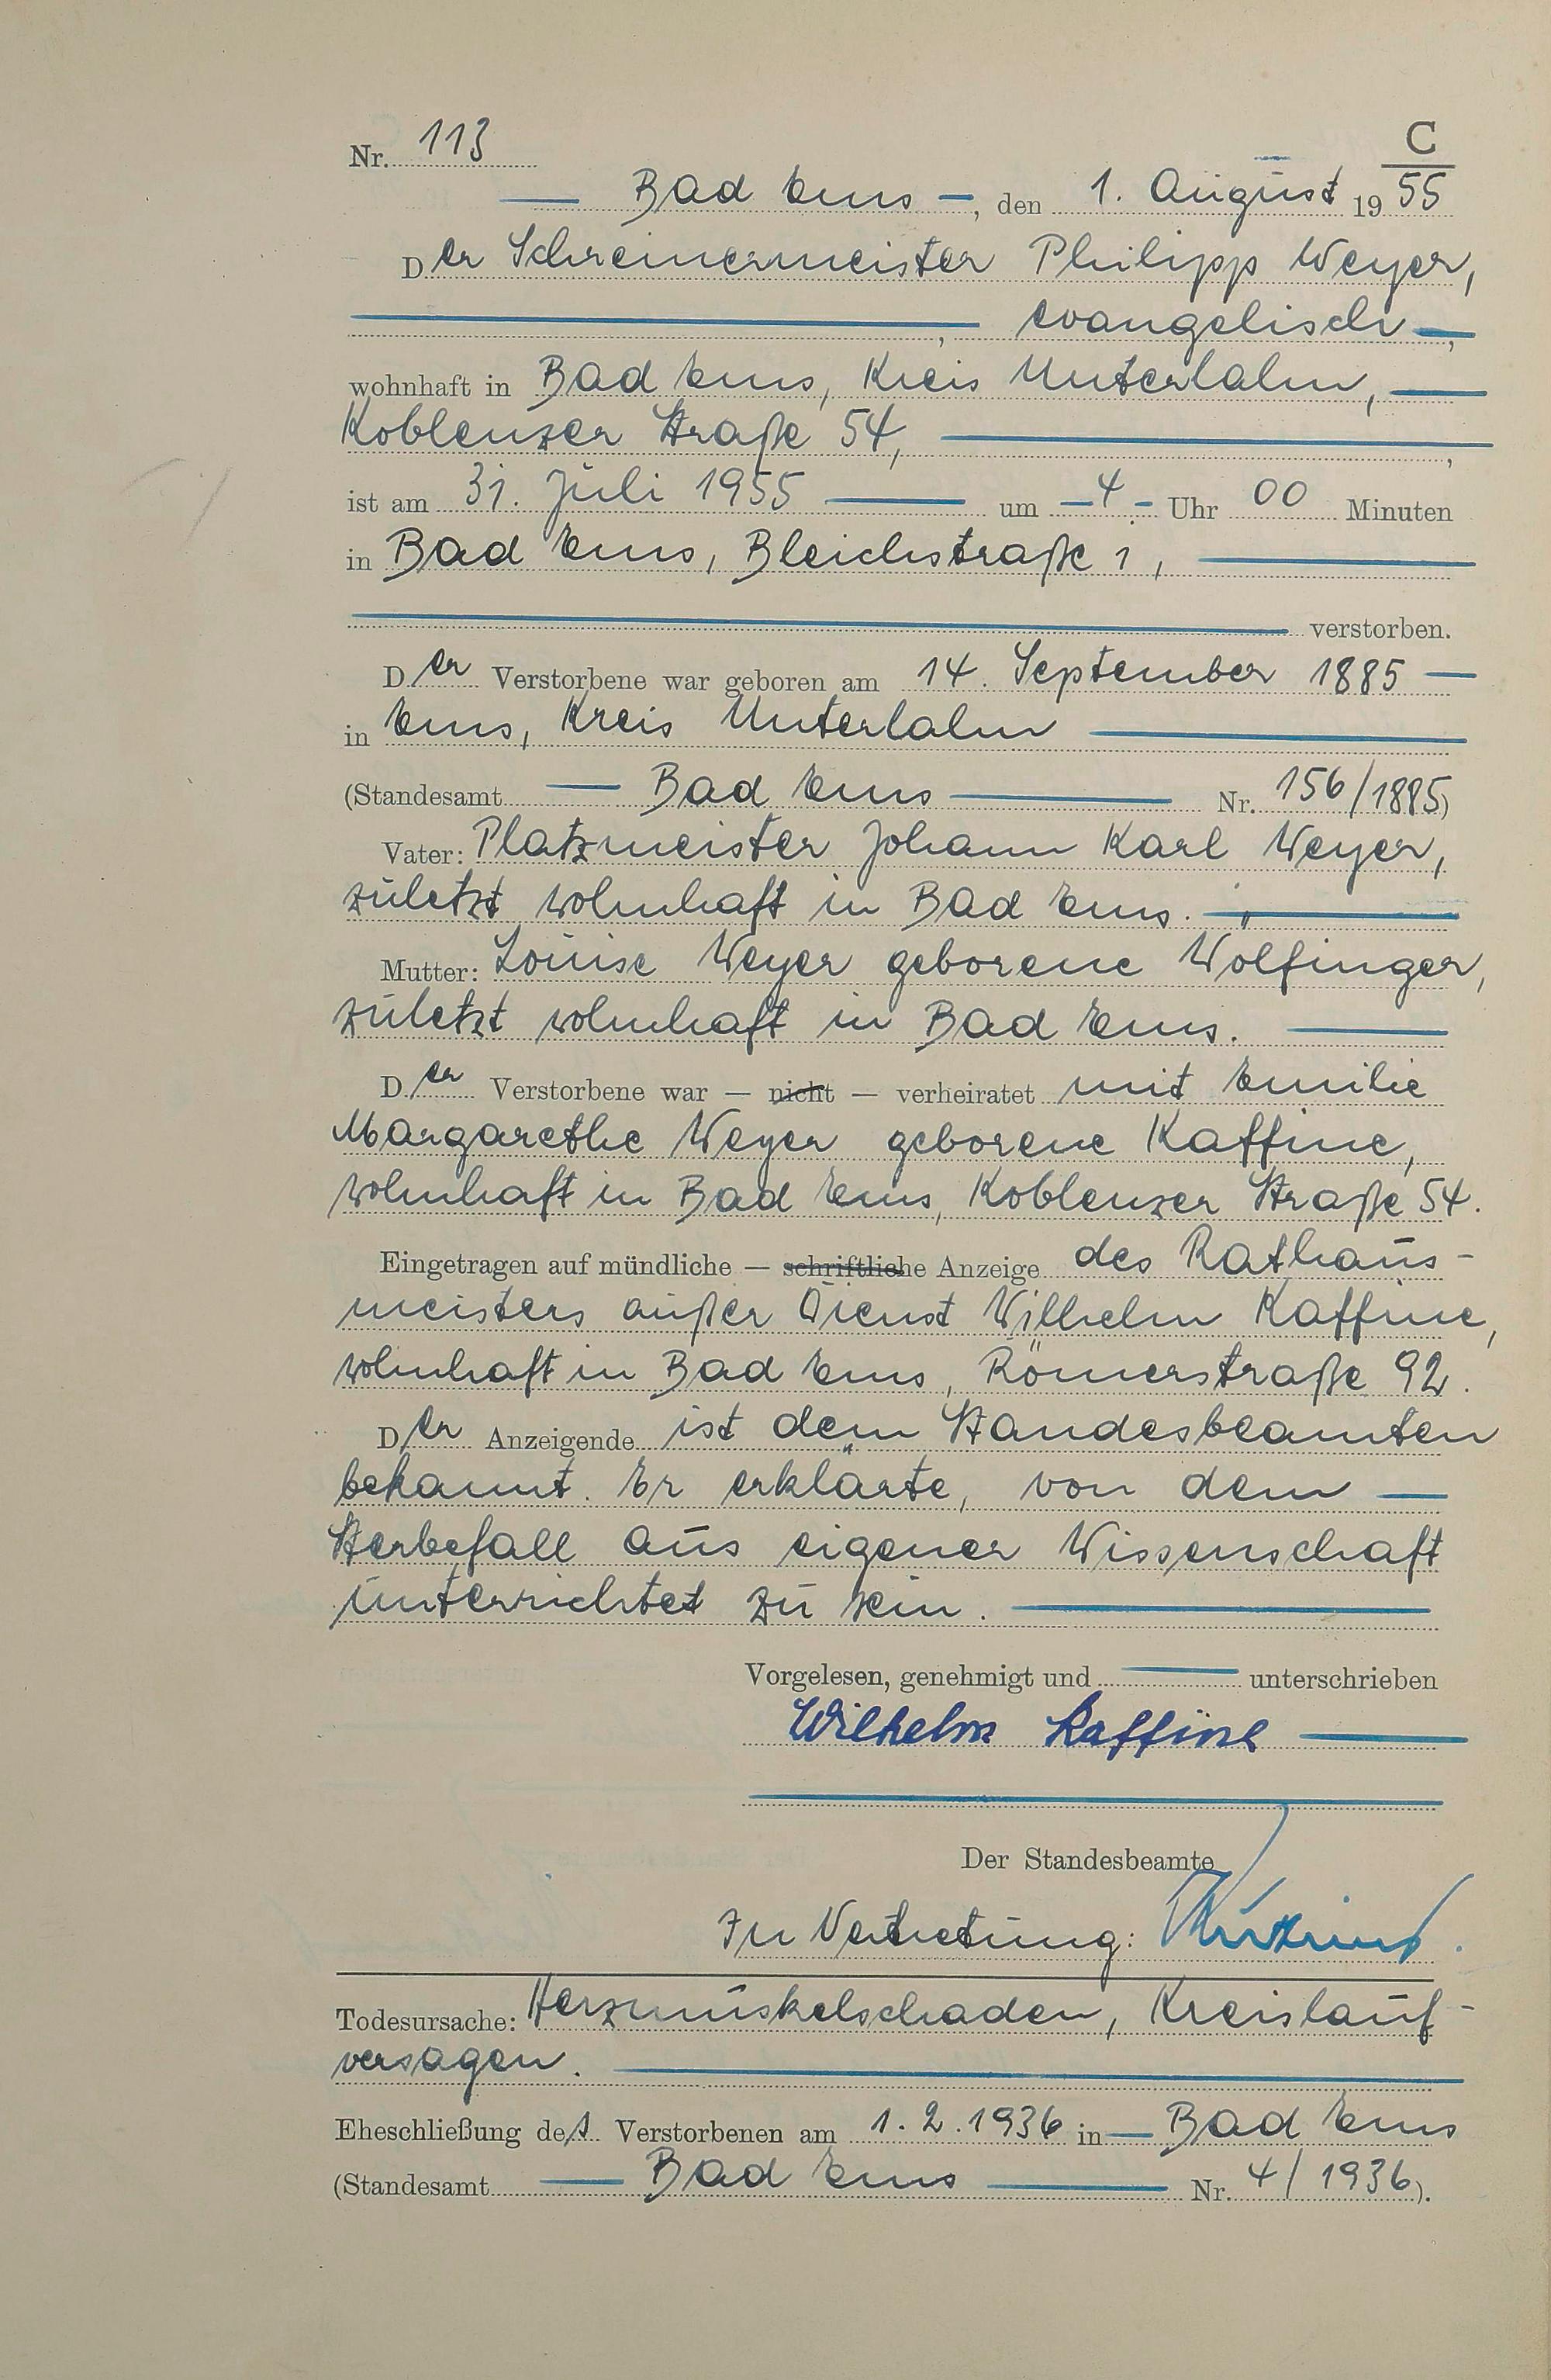 C
Nr. 113
— Bad Ems —, den 1. August 1955
Der Schreinermeister Philipp Weyer,
, evangelisch —,
wohnhaft in Bad Ems, Kreis Unterlahn, —
Koblenzer Straße 54, — ,
ist am 31. Juli 1955 — um — 4 — Uhr 00 Minuten
in Bad Ems, Bleichstraße 1, —
— verstorben.
Der Verstorbene war geboren am 14. September 1885 —
in Ems, Kreis Unterlahn —
(Standesamt — Bad Ems — Nr. 156/1885)
Vater: Platzmeister Johann Karl Weyer,
zuletzt wohnhaft in Bad Ems. —
Mutter: Louise Weyer geborene Wolfinger,
zuletzt wohnhaft in Bad Ems. —
Der Verstorbene war — nicht — verheiratet mit Emilie
Margarethe Weyer geborene Kaffine,
wohnhaft in Bad Ems, Koblenzer Straße 54.
Eingetragen auf mündliche — schriftliche Anzeige des Rathaus-
meisters außer Dienst Wilhelm Kaffine,
wohnhaft in Bad Ems, Römerstraße 92.
Der Anzeigende ist dem Standesbeamten
bekannt. Er erklärte, von dem —
Sterbefall aus eigener Wissenschaft
unterrichtet zu sein. —
Vorgelesen, genehmigt und — unterschrieben
Wilhelm Kaffine —
Der Standesbeamte
In Vertretung:
Todesursache: Herzmuskelschaden, Kreislauf-
versagen. —
Eheschließung des Verstorbenen am 1.2.1936 in — Bad Ems
(Standesamt — Bad Ems — Nr. 4/1936).